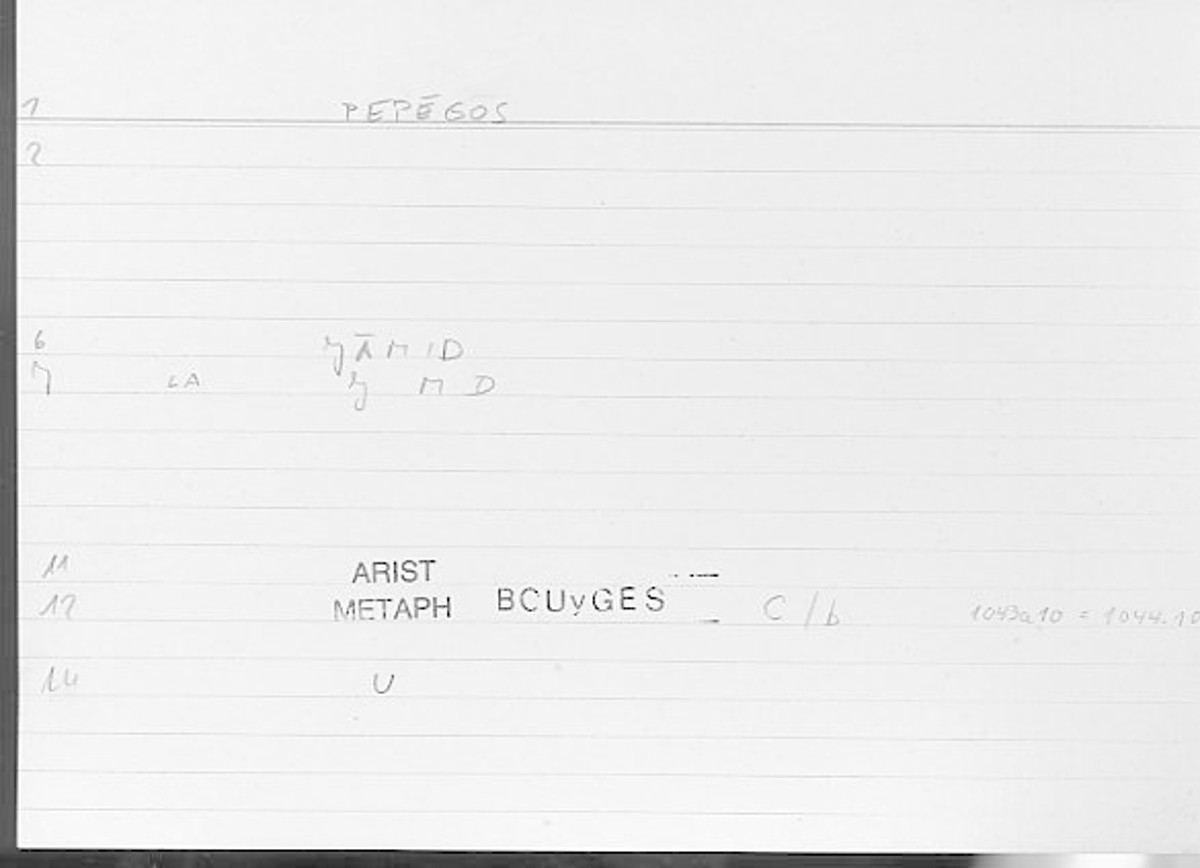 1 PEPĒGOS
2
6 ǧĀMID
7 LA ǧ M D
11 ARIST
12 METAPH BOUyGES C/b 1043a10 = 1044.10
14 U